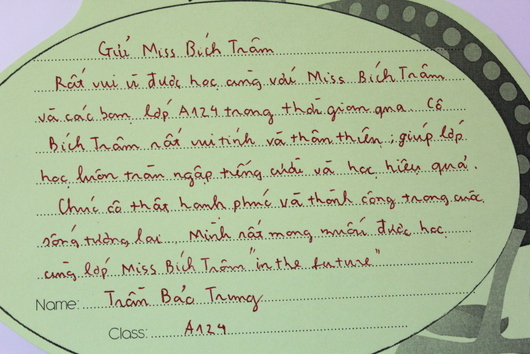 Gửi Miss Bích Trâm
Rất vui vì được học cùng với Miss Bích Trâm
và các bạn lớp A124 trong thời gian qua. Cô
Bích Trâm rất vui tính và thân thiện ; giúp lớp
học luôn tràn ngập tiếng cười và học hiệu quả.
Chúc cô thật hạnh phúc và thành công trong cuộc
sống tương lai. Mình rất mong muốn được học
cùng lớp Miss Bích Trâm "in the future"
Name: Trần Bảo Trung
Class: A124